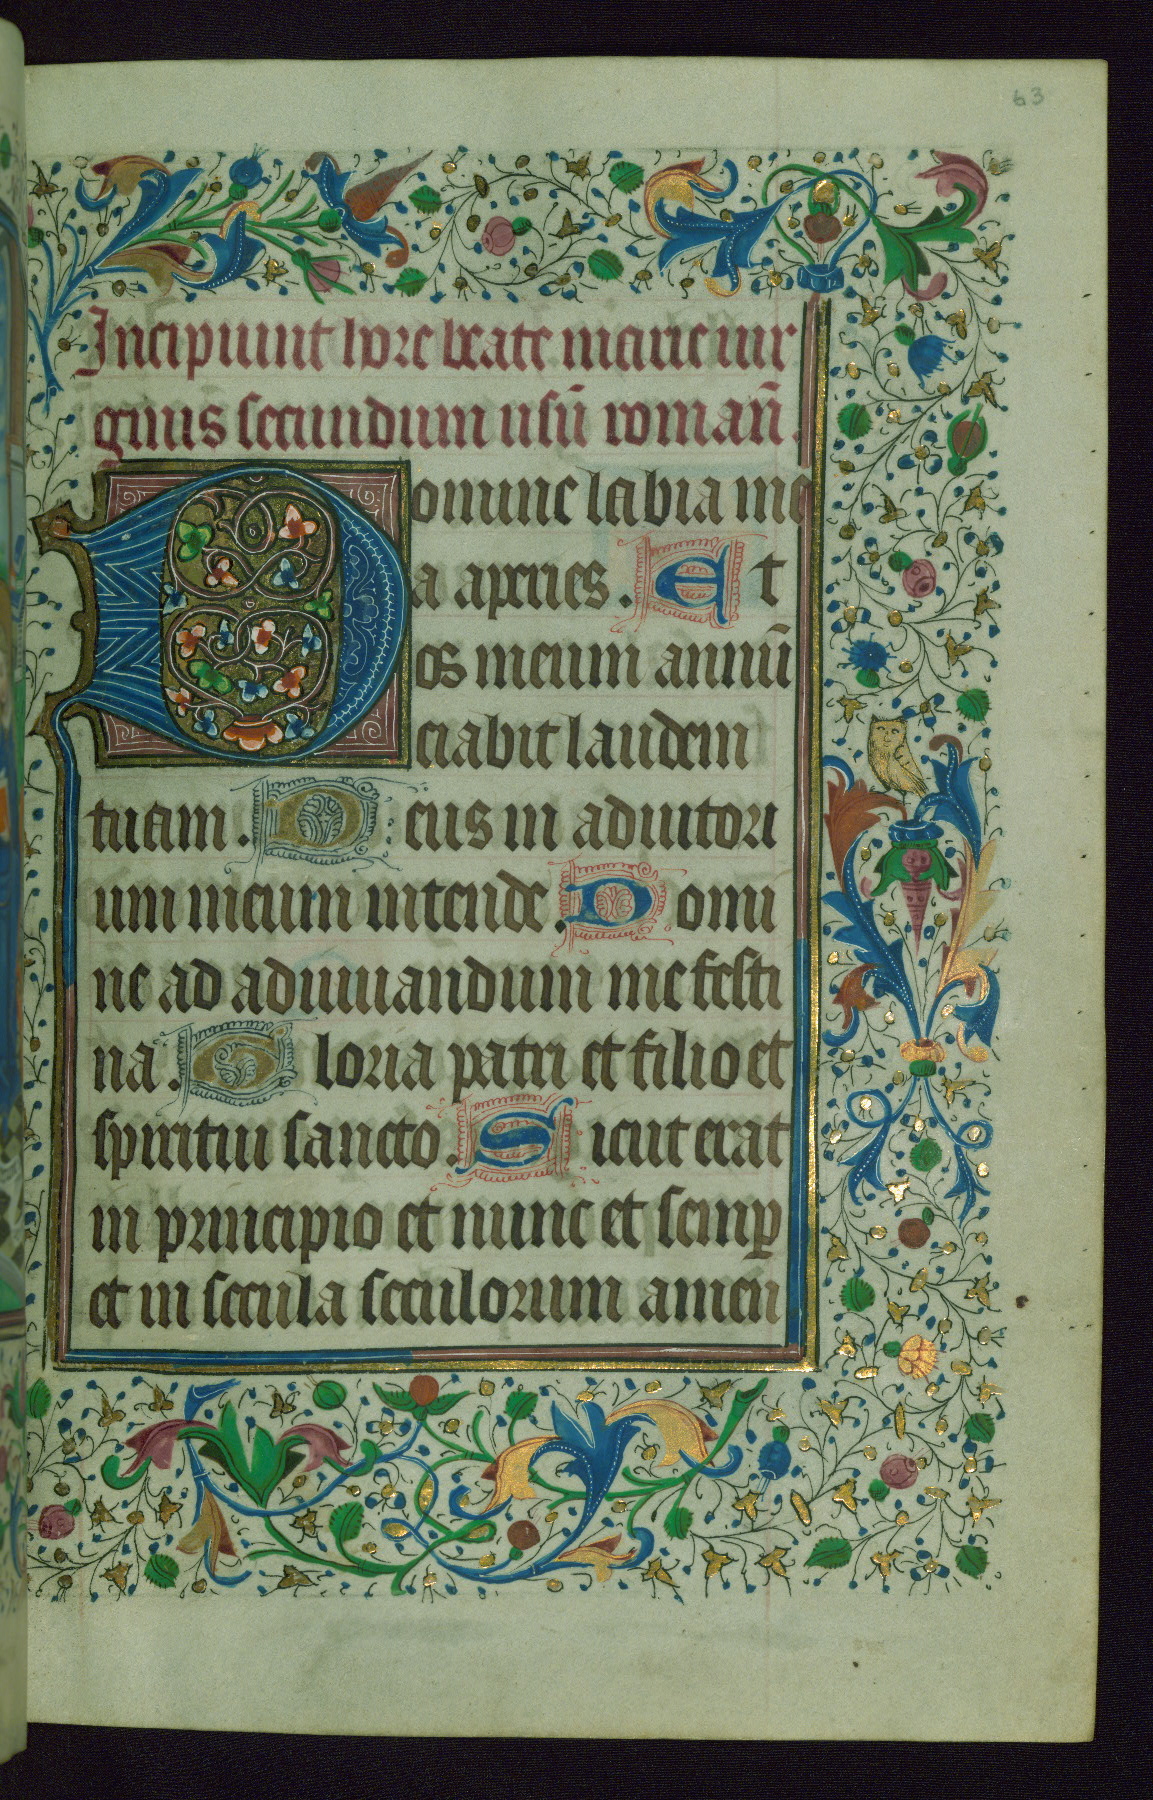 63
Incipiunt hore beate marie uir
ginis secundum usū romañ.
Domine labia me
a aperies. Et
os meum annū
ciabit laudem
tuam. Deus in adiutori
um meum intende. Domi
ne ad adiuuandum me festi
na. Gloria patri et filio et
spiritui sancto. Sicut erat
in principio et nunc et semꝑ
et in secula seculorum amen